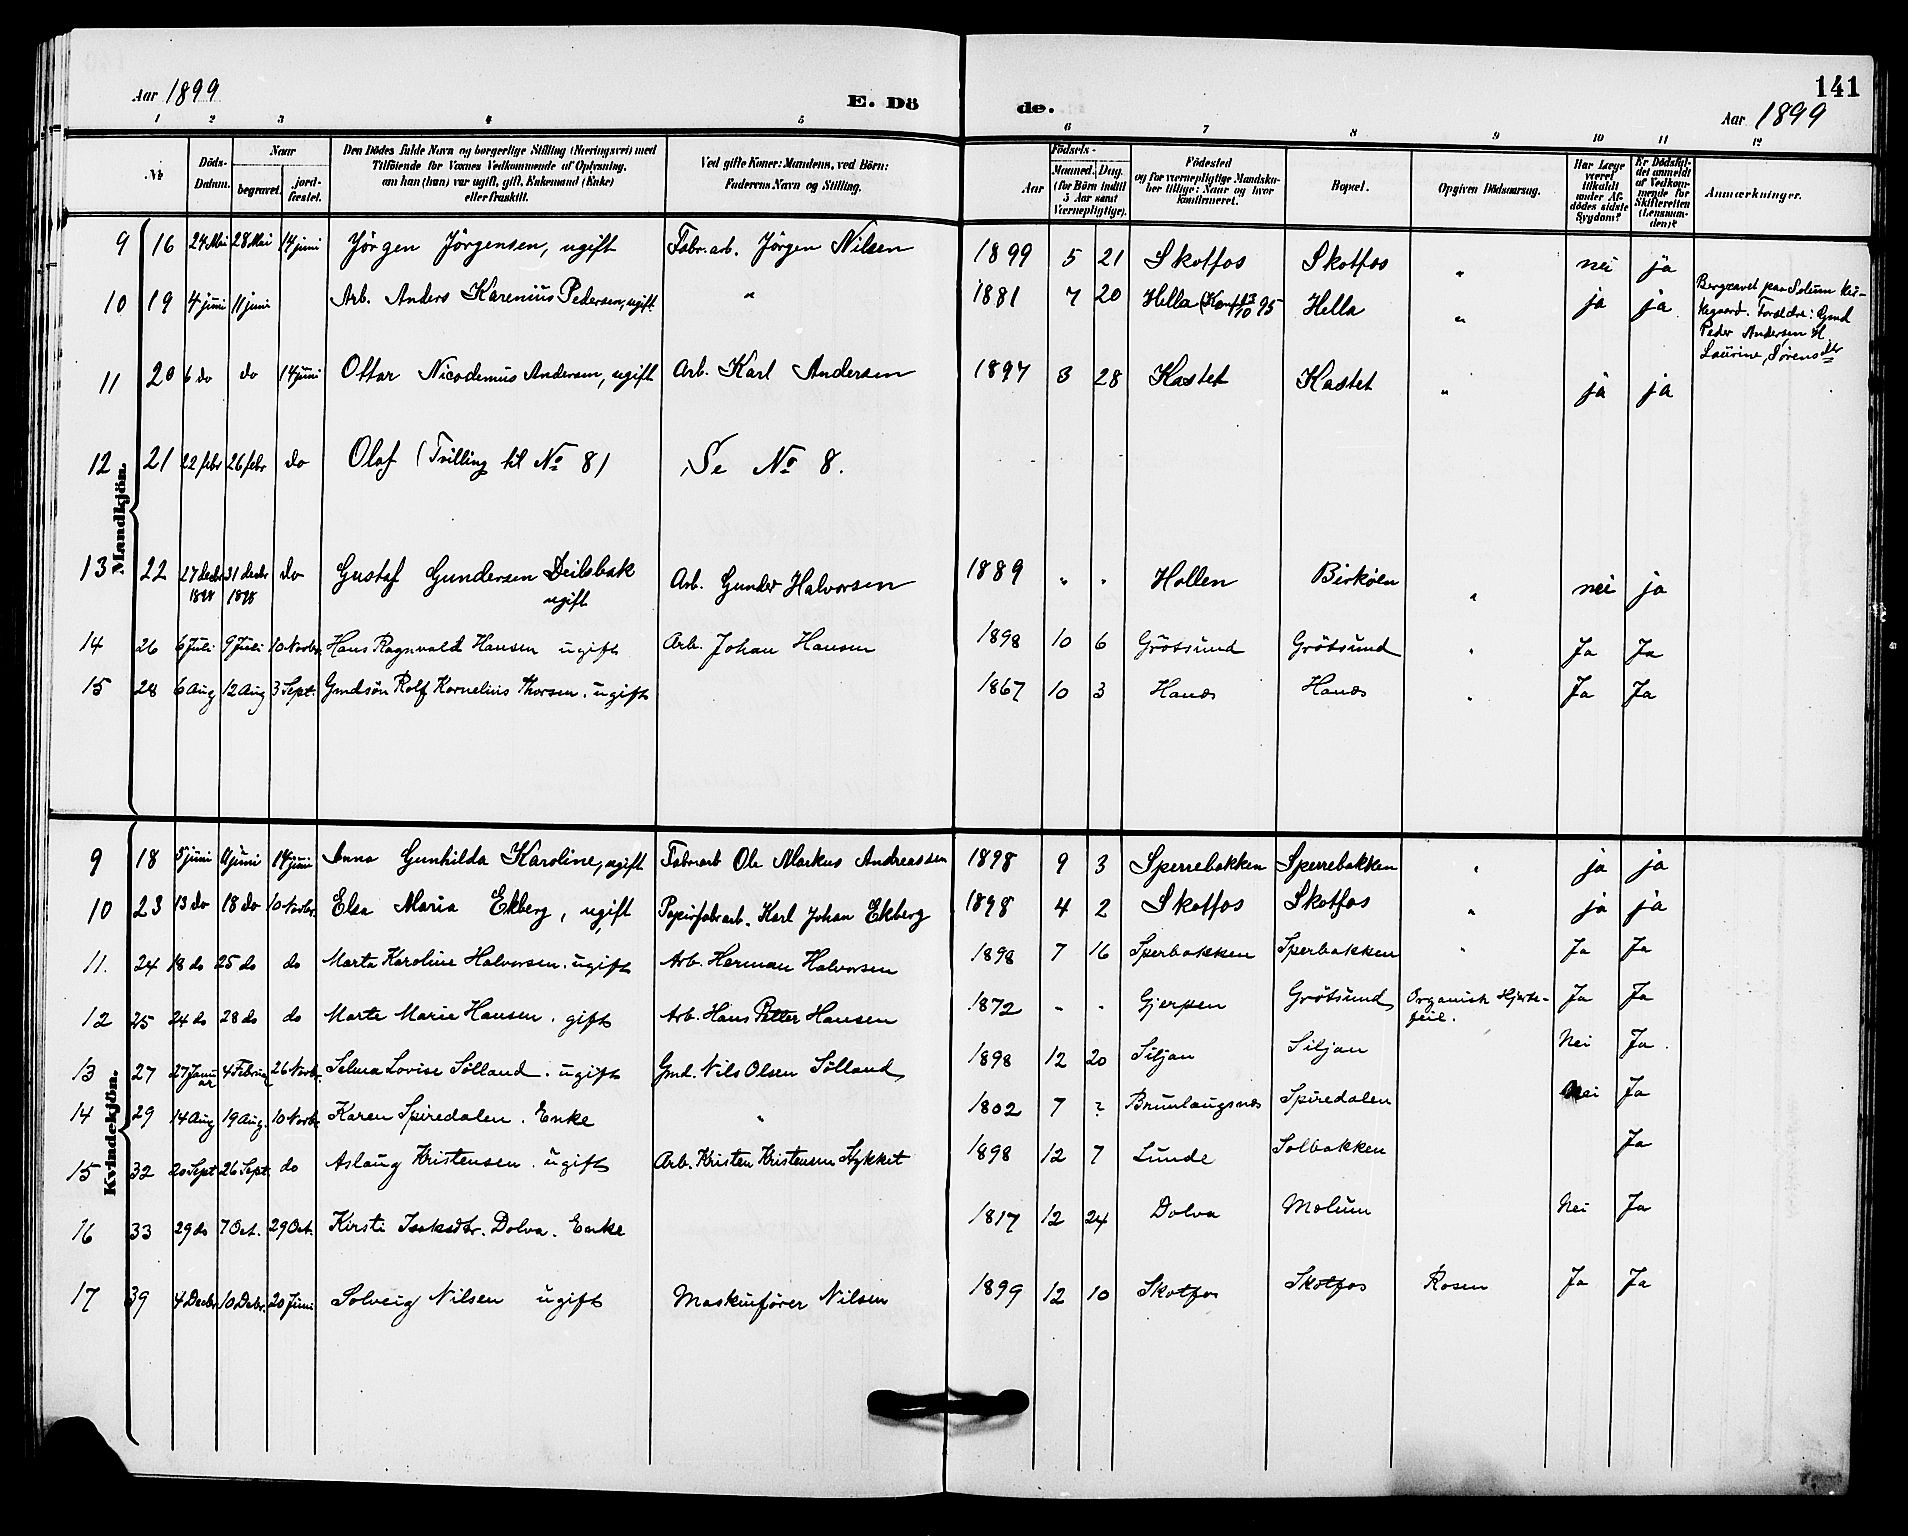 Aar 1899
E. Dö
de.
141
Aar 1899
1 2 3 4 5 6 7 8 9 10 11 12
№
Döds-Datum.
Naar
begravet.
jord-fæstet.
Den Dödes fulde Navn og borgerlige Stilling (Næringsvei) med
Tilföiende for Voxnes Vedkommende af Oplysning,
om han (hun) var ugift, gift, Enkemand (Enke)
eller fraskilt.
Ved gifte Koner: Mandens, ved Börn:
Faderens Navn og Stilling.
Födsels-
Aar
Maaned. Dag.
(for Börn indtil
5 Aar samt
Værnepligtige).
Födested
og for værnepligtige Mandska-
ber tillige: Naar og hvor
konfirmeret.
Bopæl.
Opgiven Dödsaarsag.
Har Læge
været
tilkaldt
under Af-
dödes sidste
Sygdom?
Er Dödsfal-
det anmeldt
af Vedkom-
mende for
Skifteretten
(Lensman-
den)?
Anmærkninger.
Mandkjön.
9 16 24 Mai 28 Mai 14 juni Jörgen Jörgensen, ugift Fabr.arb. Jörgen Nilsen 1899 5 21 Skotfos Skotfos " nei ja
10 19 4 juni 11 juni Arb. Anders Karenius Pedersen, ugift " 1881 7 20 Hella (Konf 13/10 95 Hella " ja ja
Bergravet paa Solum Kir-
kegaard. Forældre: Gmd
Peder Andersen H.
Laurine Sørensdtr
11 20 6 do do 14 juni Ottar Nicodemus Andersen, ugift Arb. Karl Andersen 1897 3 28 Kastet Kastet " ja ja
12 21 22 febr 26 febr do Olaf (Tvilling til No 8) Se No 8.
13 22 27 decbr 31 decbr do Gustaf Gundersen Deilsbak Arb. Gunder Halvorsen 1889 " " Hollen Birköen " nei ja
1898 1898 ugift
14 26 6 Juli 9 Juli 10 Novbr. Hans Ragnvald Hansen ugift Arb. Johan Hansen 1898 10 6 Grötsund Grötsund " Ja Ja
15 28 6 Aug 12 Aug 3 Sept. Gmdsön Rolf Kornelius Thorsen. ugift 1867 10 3 Hanæs Hanæs " Ja Ja
Kvindekjön.
9 18 5 juni 11 juni 14 juni Anna Gunhilda Karoline, ugift Fabr.arb Ole Markus Andreassen 1898 9 3 Sperrebakken Sperrebakken " ja ja
10 23 13 do 18 do 10 Novbr. Elsa Maria Ekberg, ugift Papirfabr.arb. Karl Johan Ekberg 1898 4 2 Skotfos Skotfos " ja ja
11. 24 18 do 25 do do Marta Karoline Halvorsen. ugift Arb. Herman Halvorsen 1898 7 16 Sperbakken Sperbakken " Ja Ja
12 25 24 do 28 do do Marte Marie Hansen. gift Arb. Hans Petter Hansen 1872 " " Gjerpen Grötsund Organisk Hjerte- Ja Ja
feil.
13 27 27 Januar 4 Februar 26 Novbr. Selma Lovise Sølland. ugift Gmd. Nils Olsen Sølland 1898 12 20 Siljan Siljan Nei Ja.
14 29 14 Aug 19 Aug. 10 Novbr. Karen Spiredalen. Enke " 1802 7 ? Brunlaugsnæs Spiredalen Nei Ja
15 32 20 Sept 26 Sept. do Aslaug Kristensen. ugift Arb. Kristen Kristensen Stykket 1898 12 7 Lunde Solbakken Ja
16 33 29 do 7 Oct. 29 Oct. Kirsti Isaksdtr. Dolva. Enke 1817 12 24 Dolva Mælum Nei Ja
17 39 4 Decbr 10 Decbr. 20 Juni Solveig Nilsen ugift Maskinfører Nilsen 1899 12 10 Skotfos Skotfos Rosen Ja Ja